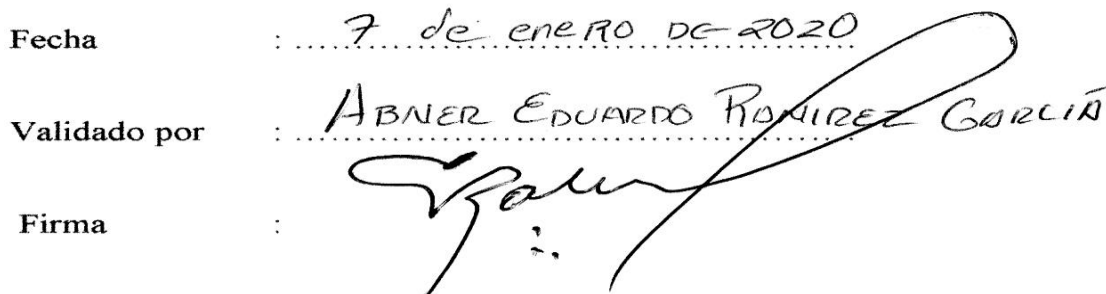 Fecha : 7 de enero de 2020
Validado por : ABNER EDUARDO RAMIREZ GARCIA
Firma :